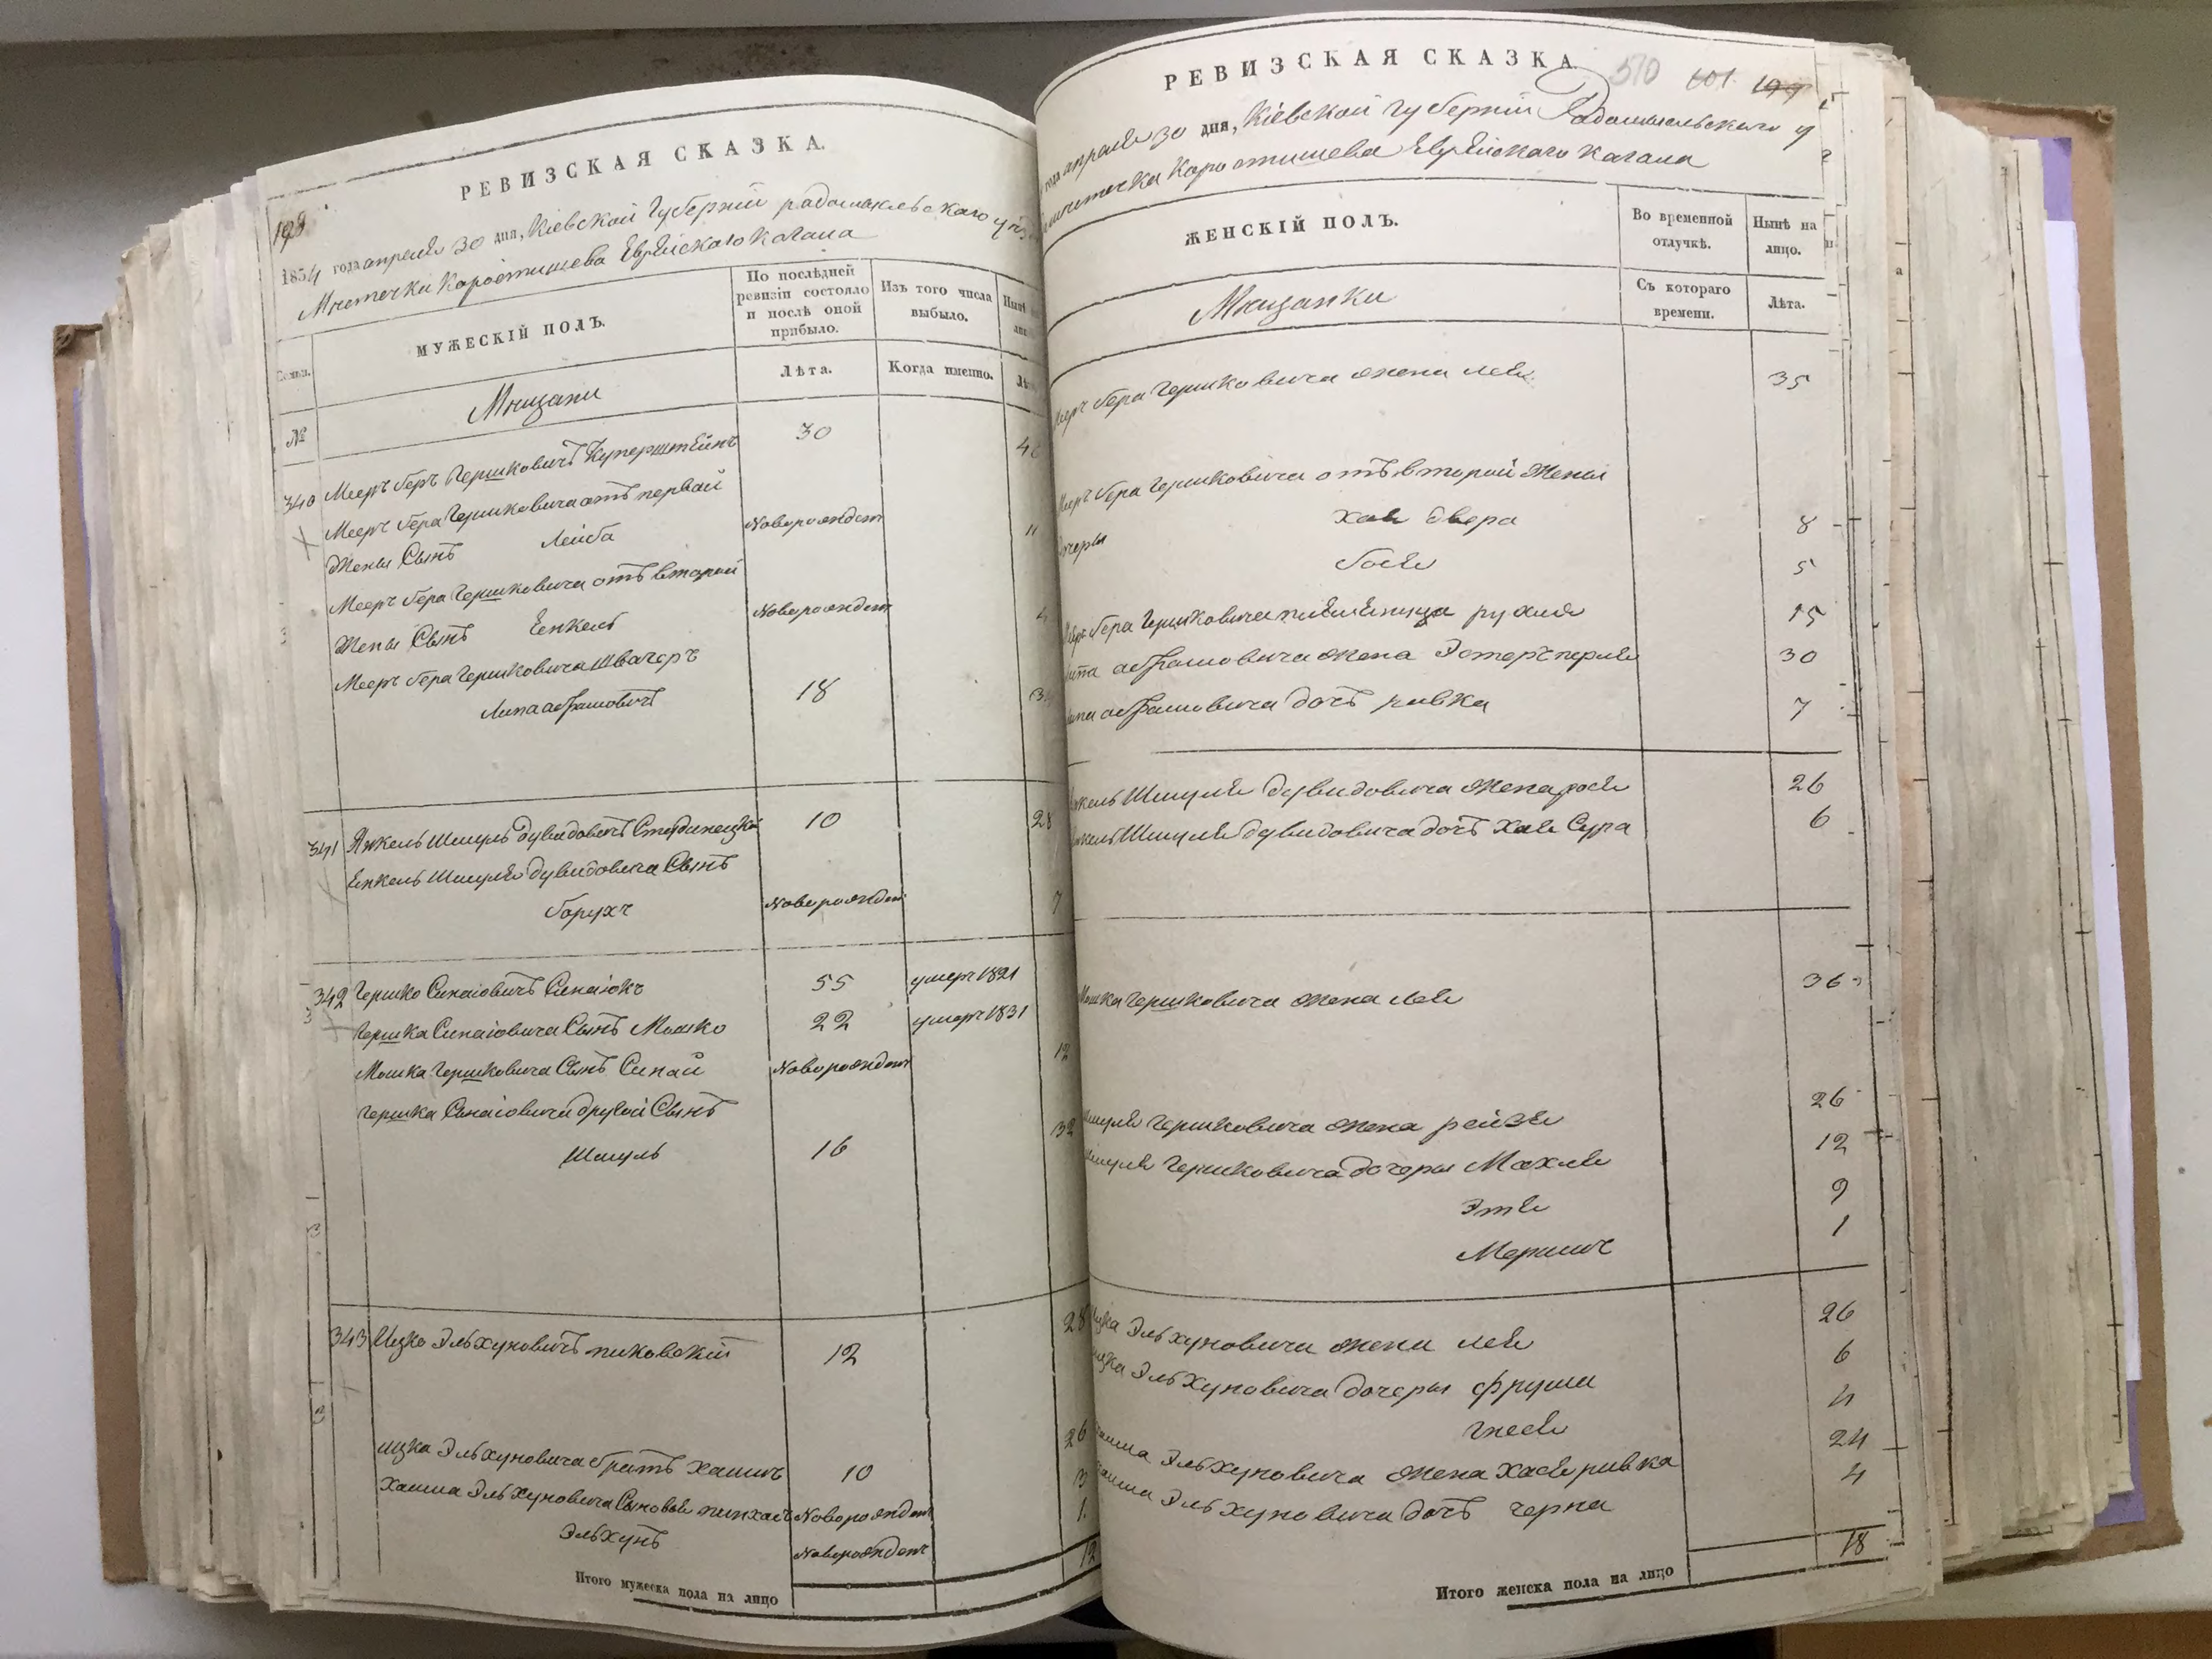 РЕВИЗСКАЯ СКАЗКА.
198
1834 года апреля 30 дня, Кіевской Губерніи радомысльского
Местечка Коростишева Еврейскаго Кагала
Семьи.
МУЖЕСКІЙ ПОЛЪ.
По послѣдней ревизіи состояло и послѣ оной прибыло.
Изъ того числа выбыло.
Нынѣ
№
Мещане
Лѣта.
Когда именно.
340 Мееръ беръ Гершковичъ Куперштейнъ 30
Мееръ бера Гершковича отъ первой
Жены Сынъ Лейба Новорожденъ 11
Мееръ бера Гершковича отъ второй
Жены Сынъ Енкель Новорожденъ 4
Мееръ бера Гершковича Швагеръ
Липа абрамовичъ 18
341 Янкель Шмуль Дувидовичъ 10 28
Енкель Шмуля Дувидовича Сынъ
борухъ Новорожден 7
342 Гершко Синаіовичъ Синаюкъ 55 умеръ 1821
Гершка Синаіовича Сынъ Мошко 22 умеръ 1831
Мошка Гершковича Сынъ Синай Новорожденъ 12
Гершка Синаіовича другой Сынъ
Шмуль 16 32
343 Ицко Эльхуновичъ пиковскій 12 28
ицка Эльхуновича братъ Хаимъ 10 26
Хаима Эльхуновича Сыновья пинхасъ Новорожденъ 3
Эльхунъ Новорожденъ 1
Итого мужеска пола на лицо 12
РЕВИЗСКАЯ СКАЗКА
510 601 199
года апреля 30 дня, Кіевской губерніи Радомысльского у
местечка Коростишева Еврейскаго кагала
ЖЕНСКІЙ ПОЛЪ.
Во временной отлучкѣ.
Нынѣ на лицо.
Мещанки
Съ котораго времени.
Лѣта.
Мееръ бера Гершковича жена Лея 35
Мееръ бера Гершковича отъ второй Жены
дочеры Хая двера 8
бося 5
Мееръ бера Гершковича племеница рухля 15
Липа абрамовича жена Эстеръ перля 30
Липа абрамовича дочъ ривка 7
Янкель Шмуля Дувидовича жена рося 26
Янкель Шмуля Дувидовича дочъ Хая Сура 6
Мошка Гершковича жена лея 36
Шмуля Гершковича жена рейзя 26
Шмуля Гершковича дочеры Махля 12
Этя 9
Мериимъ 1
Ицка Эльхуновича жена лея 26
Ицка Эльхуновича дочеры фрума 6
гнеся 4
Хаима Эльхуновича жена Хася ривка 24
Хаима Эльхуновича дочъ черна 4
Итого женска пола на лицо 18